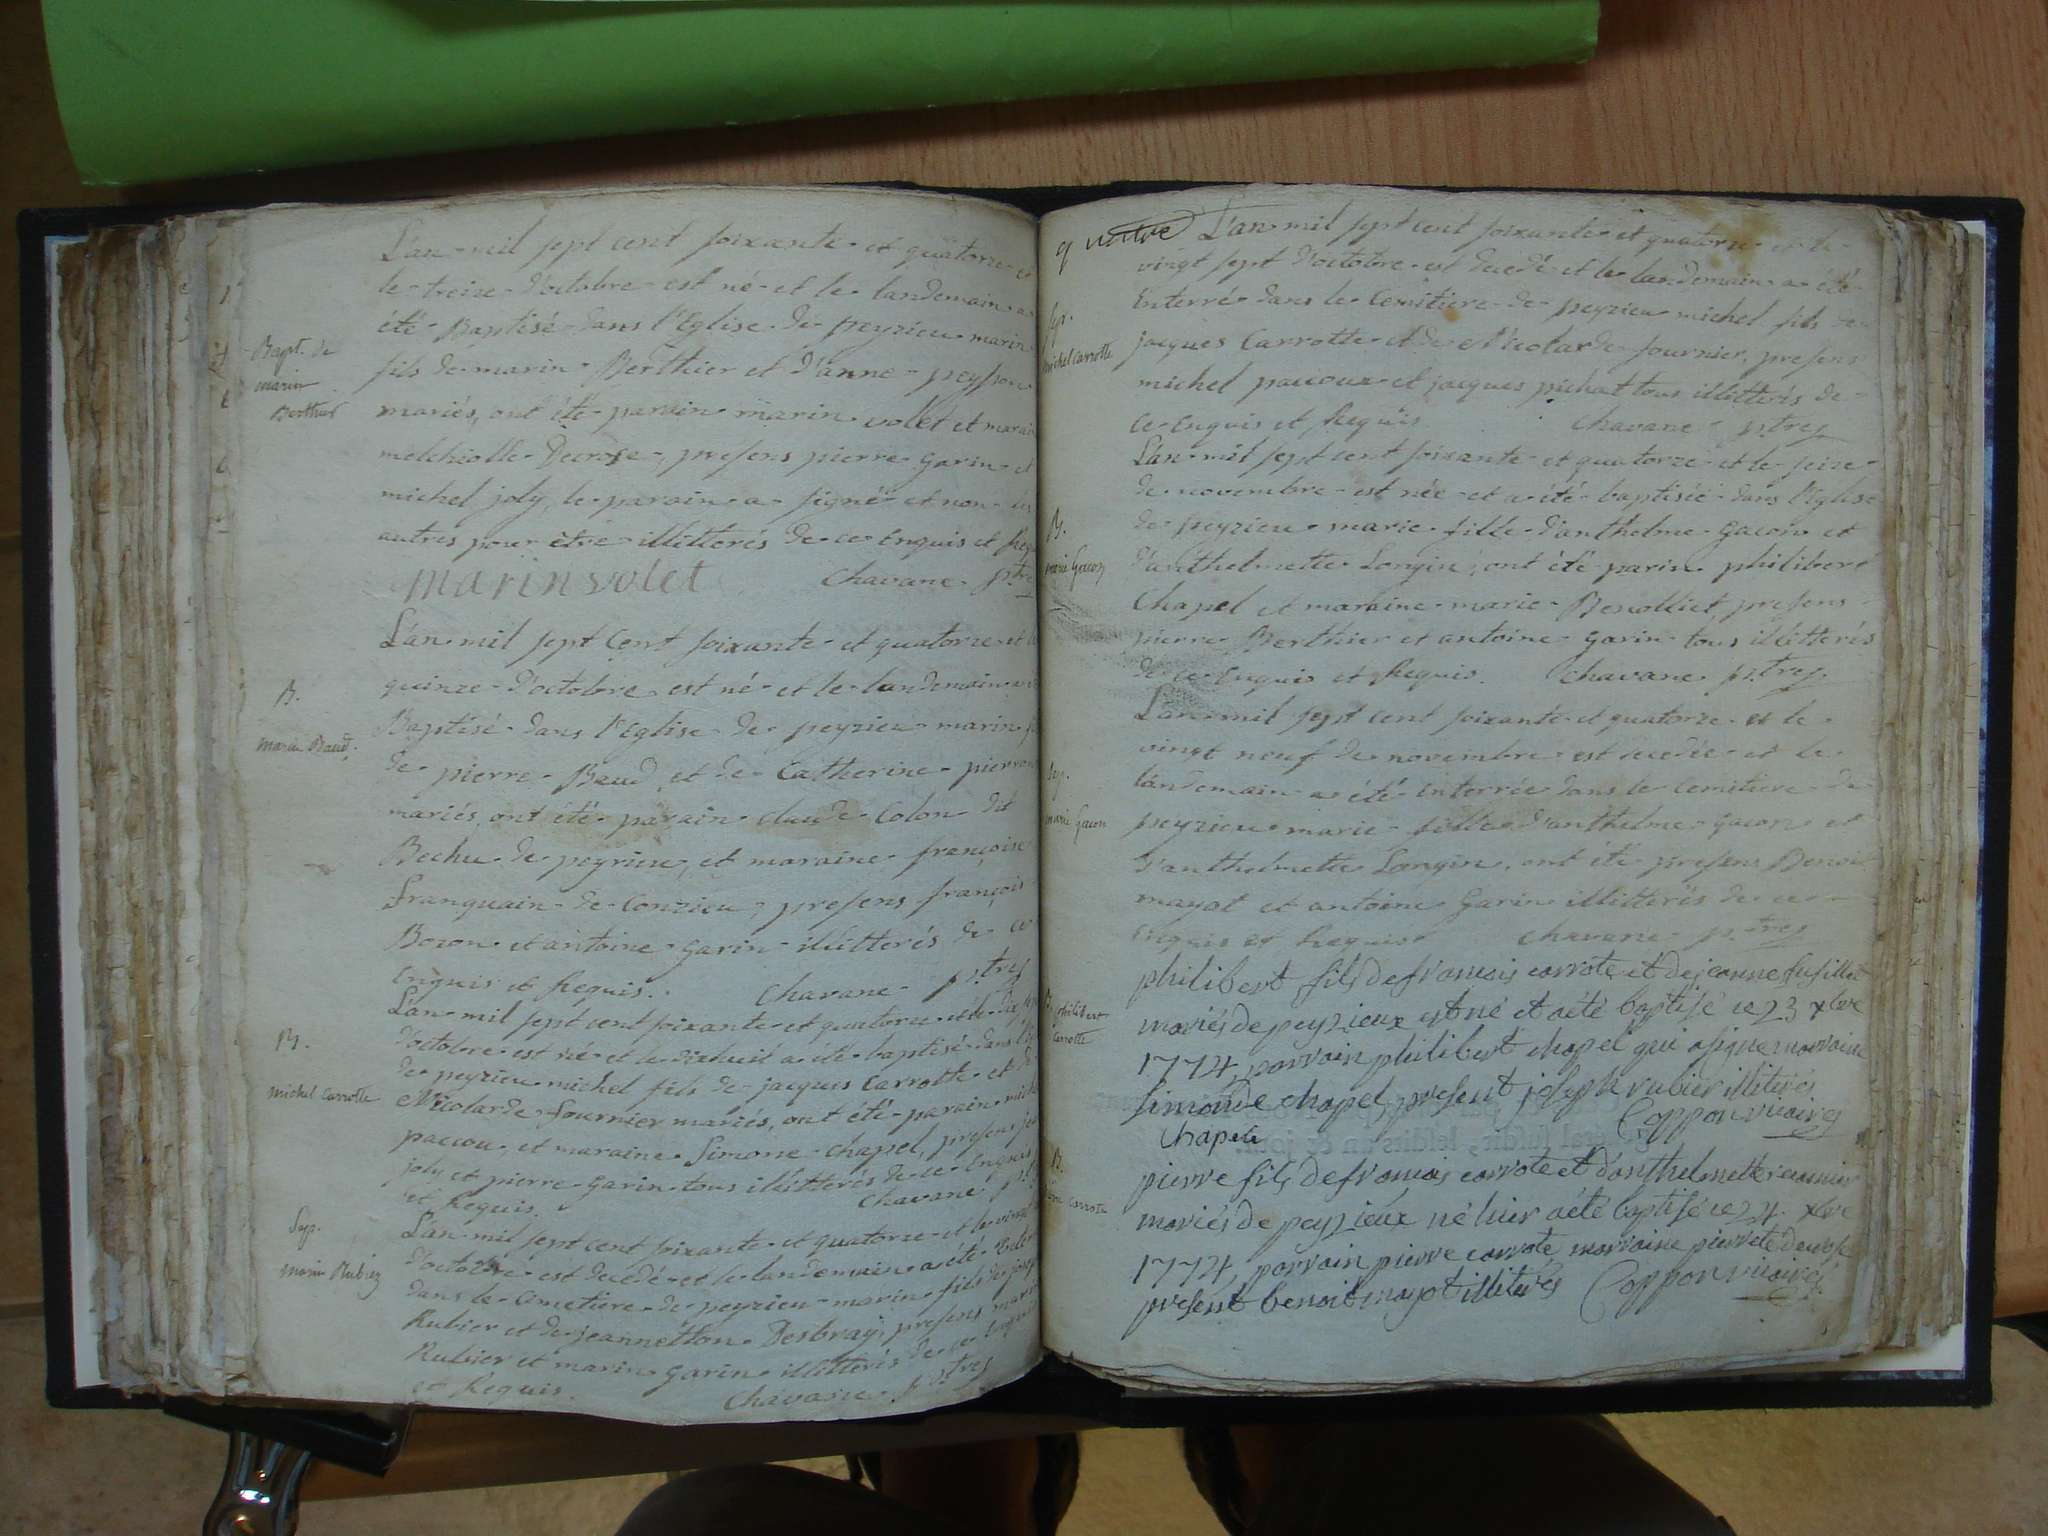 L'an mil sept cent soixante et quatorze et
le treize d'octobre est né et le landemain a
été Baptisé dans l'Eglise de peyzieu marin
Bapt. de
marin
Berthier
fils de marin Berthier et d'anne peysson
mariés, ont été parain marin volet et maraine
melchiolle Decrose, presens pierre garin et
michel joly, le parain a signé et non les
autres pour être illitterés de ce Enquis et Requis
marin volet Chavane p.tre
L'an mil sept Cent soixante et quatorze et le
quinze d'octobre est né et le landemain a été
B.
marin Baud.
Baptisé dans l'Eglise de peyzieu marin fils
de pierre Baud et de Catherine
mariés, ont été parain claude Colon dit
Bechu de peyzieu, et maraine françoise
franquain de Conzieu, presens françois
Bozon et antoine garin illitterés de ce
Enquis et Requis. Chavane p.tre
L'an mil sept cent soixante et quatorze et le dix sept
B.
michel Carrotte
d'octobre est né et le dixhuit a été baptisé dans l'Eglise
de peyzieu michel fils de jacques Carrotte et de
Nicolarde fournier mariés, ont été parain michel
paccou, et maraine Simone chapel, presens
joly et pierre garin tous illitterés de ce Enquis
et Requis. Chavane
Sep.
marin Rubier
L'an mil sept cent soixante et quatorze et le vingt
d'octobre est decedé et le landemain a été Enterré
dans le Cimetiere de peyzieu marin fils de joseph
Rubier et de jeannetton Desbray, presens marin
Rubier et marin garin illitterés de ce Enquis
et Requis. Chavane p.tre
quatre L'an mil sept cent soixante et quatorze et le
vingt sept d'octobre est decedé et le landemain a été
Sep.
michel Carrotte
Enterré dans le Cemitiere de peyzieu michel fils de
jacques Carrotte et de Nicolarde fournier, presens
michel paccoux et jacques pichat tous illitterés de
ce Enquis et Requis Chavane p.tre
L'an mil sept cent soixante et quatorze et le seize
de novembre est née et a été baptisée dans l'Eglise
B.
marie Gacon
de peyzieu marie fille d'anthelme Gacon et
d'anthelmette Longin, ont été parin philibert
Chapel et maraine marie Benolliet, presens
pierre Berthier et antoine garin tous illitterés
de ce Enquis et Requis. Chavane p.tre
L'an mil sept cent soixante et quatorze et le
vingt neuf de novembre est decedée et le
Sep.
marie Gacon
landemain a été Enterrée dans le Cemitiere de
peyzieu marie fille d'anthelme Gacon et
d'anthelmette Longin, ont été presens Benoit
mayot et antoine Garin illitterés de ce
Enquis et Requis Chavane p.tre
B. philibert
Carrotte
philibert fils de francois carrote et de jeanne fusillet
mariés de peyzieux est né et a été baptisé ce 23 xbre
1774, parrain philibert chapel qui a signe marraine
simonde chapel, present joseph rubier illiterés
Chapel Coppon vicaire
B.
pierre Carrotte
pierre fils de francois carrote et d'anthelmette
mariés de peyzieux né hier a été baptisé ce 24 xbre
1774, parrain pierre carrote, marraine pierrete decrose
present benoit mayot illiterés Coppon vicaire